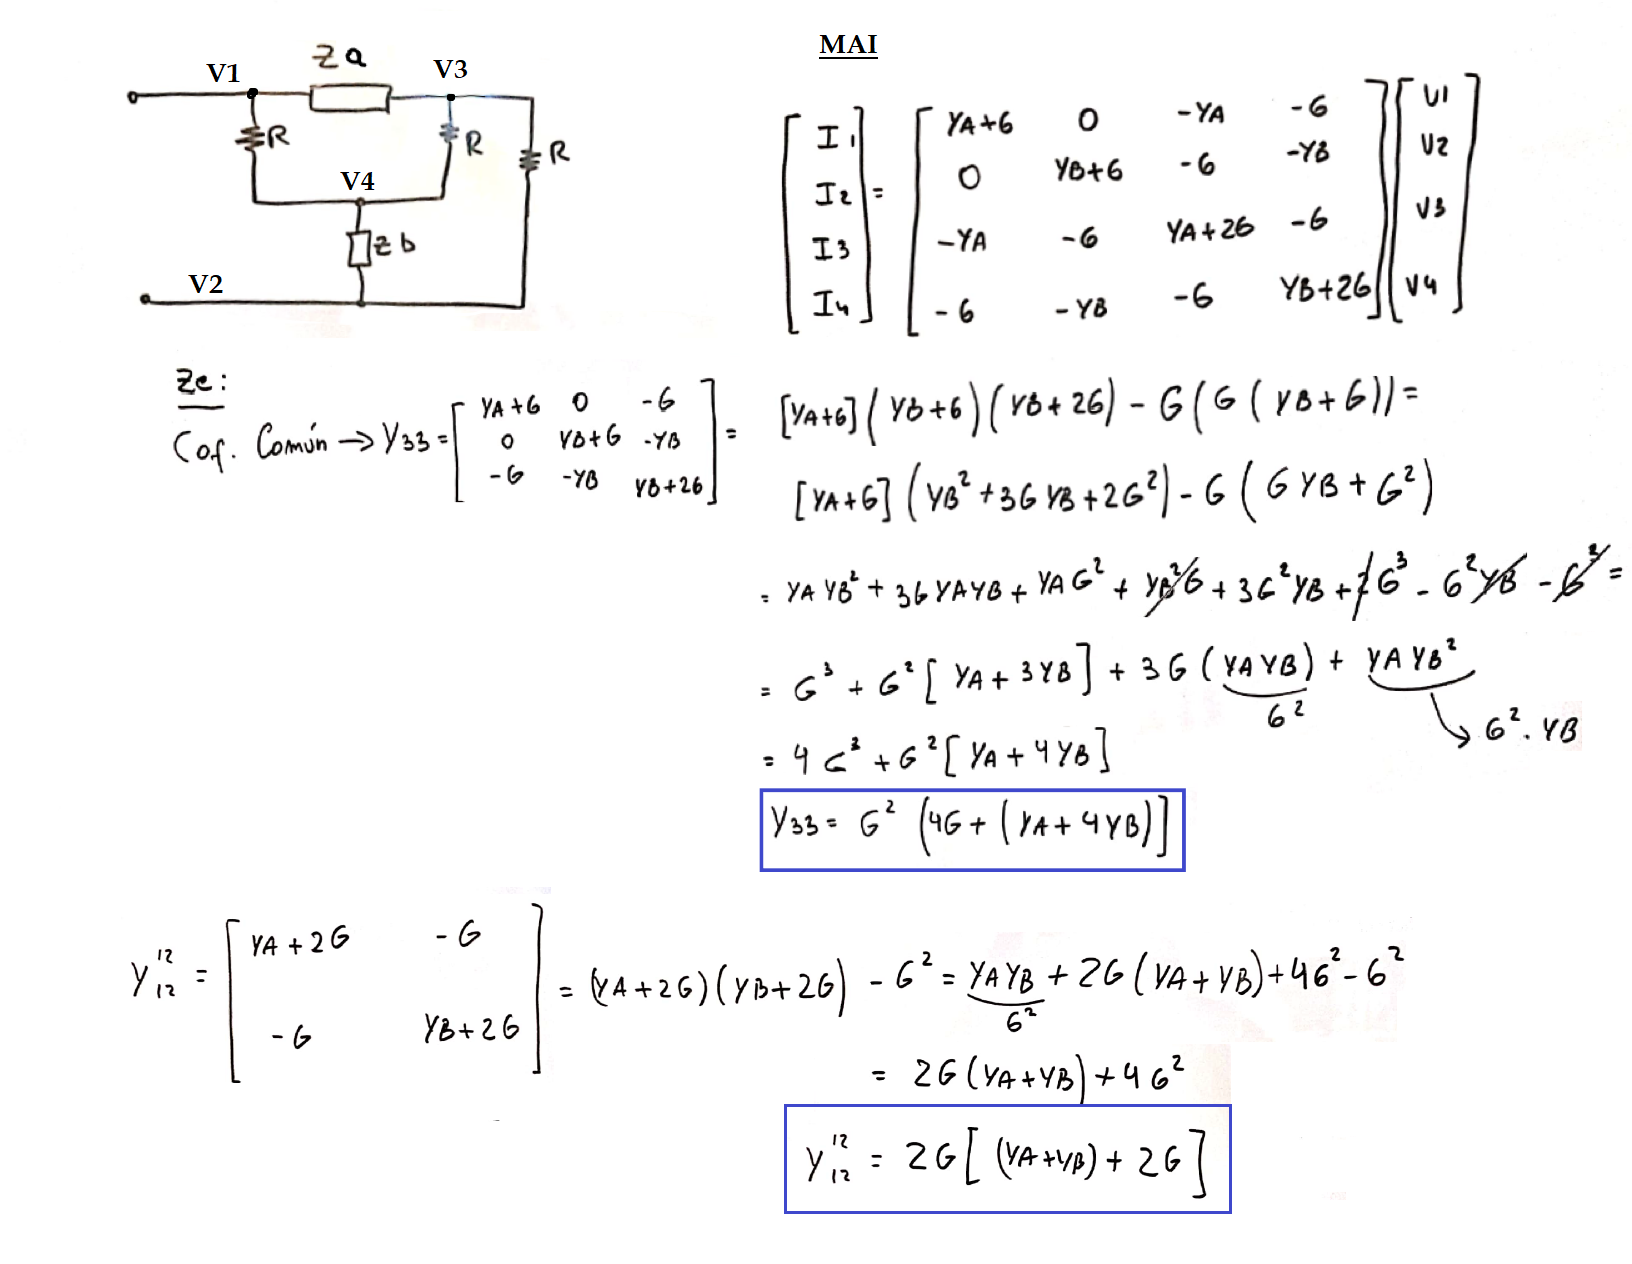 MAI
Za
V1
V3
R
R
R
V4
Zb
V2
[I1 I2 I3 I4] = [YA+G 0 -YA -G] [V1 V2 V3 V4]
[0 YB+G -G -YB]
[-YA -G YA+2G -G]
[-G -YB -G YB+2G]
Ze:
Cof. Común → Y33 = [YA+G 0 -G] = [YA+G](YB+G)(YB+2G) - G(G(YB+G)) =
[0 YB+G -YB]
[-G -YB YB+2G]
[YA+G](YB²+3GYB+2G²) - G(GYB+G²)
= YAYB² + 3GYAYB + YAG² + YB²G + 3G²YB + 2G³ - G²YB - G³ =
= G³ + G²[YA + 3YB] + 3G(YAYB) + YAYB²
G²
G².YB
= 4G³ + G²[YA + 4YB]
Y33 = G²(4G + (YA + 4YB)]
Y¹²₁₂ = [YA+2G -G] = (YA+2G)(YB+2G) - G² = YAYB + 2G(YA+YB) + 4G² - G²
[-G YB+2G]
G²
= 2G(YA+YB) + 4G²
Y¹²₁₂ = 2G[(YA+YB) + 2G]